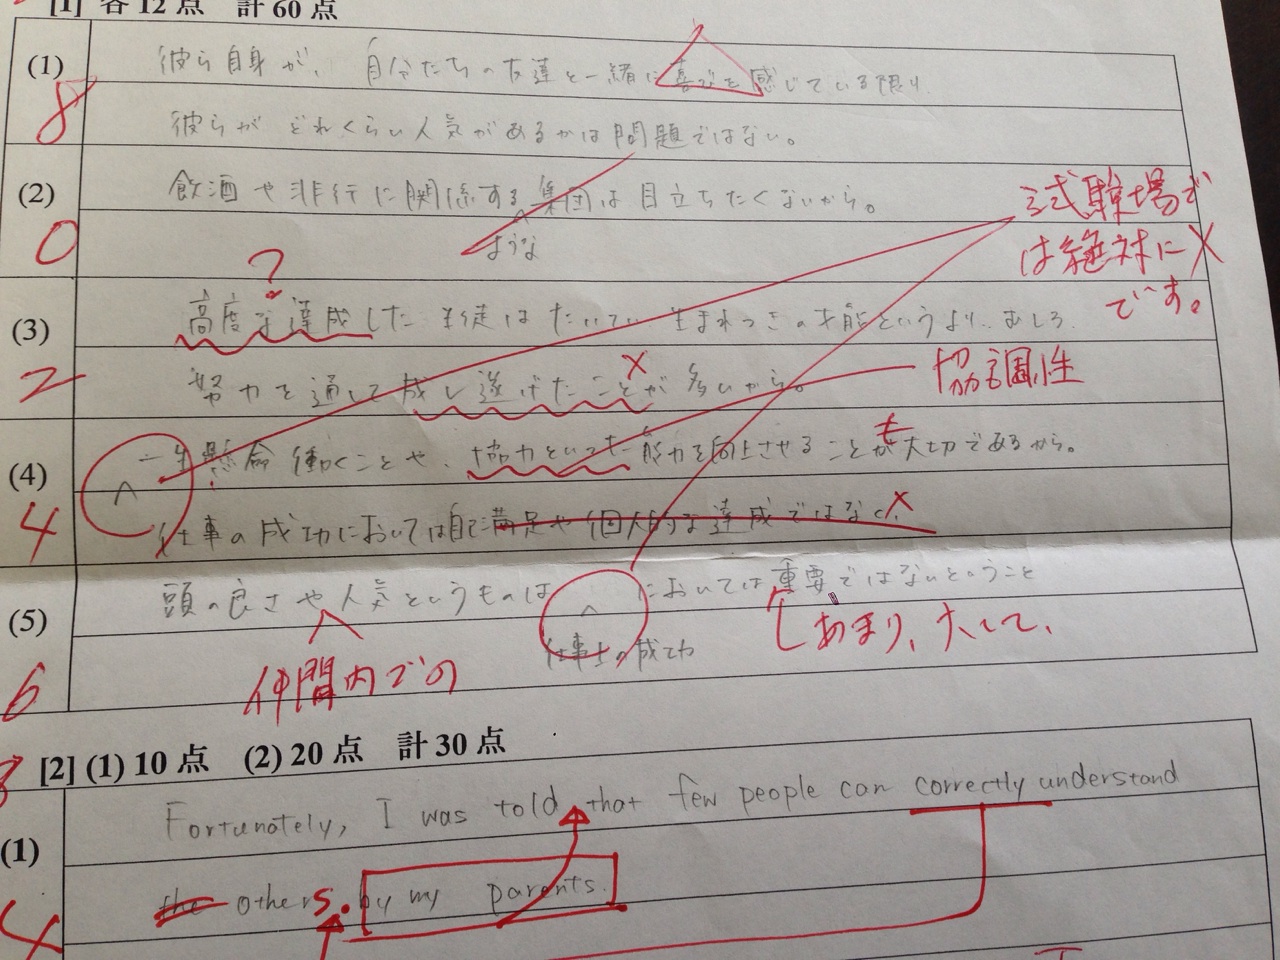 [1] 各12点 計60点
(1) 彼ら自身が、自分たちの友達と一緒に喜びを感じている限り
8 彼らがどれくらい人気があるかは問題ではない。
(2) 飲酒や非行に関係する集団は目立ちたくないから。
0 ような
試験場で
は絶対に×
です。
?
(3) 高度な達成した生徒はたいてい生まれつきの才能というより、むしろ
2 努力を通して成し遂げたことが多いから。
×
協調性
(4) 一生懸命働くことや、協力といった能力を向上させることが大切であるから。
も
4 仕事の成功においては自己満足や個人的な達成ではなく
×
(5) 頭の良さや人気というものは においては重要ではないということ
仕事上の成功
あまり、大して、
6 仲間内での
[2] (1) 10点 (2) 20点 計30点
(1) Fortunately, I was told that few people can correctly understand
4 the others. by my parents.